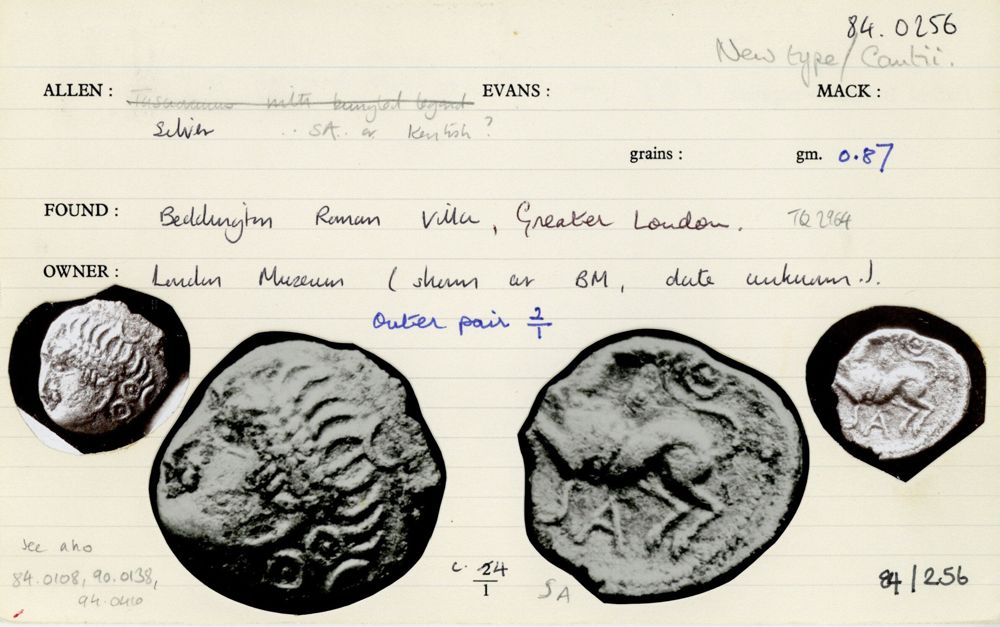 84.0256
New type / Cantii.
ALLEN : Tasciovanus with bungled legend EVANS : MACK :
Silver .. SA.. or Kentish ?
grains : gm. 0.87
FOUND : Beddington Roman Villa, Greater London. TQ 2964
OWNER : London Museum ( shown at BM, date unknown.).
Outer pair 2/1
SA
see also
84.0108, 90.0138,
94.0410
c. 4/1
SA
84/256